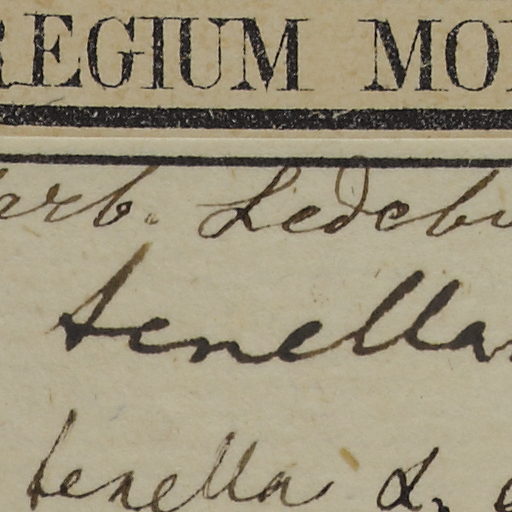 REGIUM MO
arb. Ledebu
tenella
tenella L.